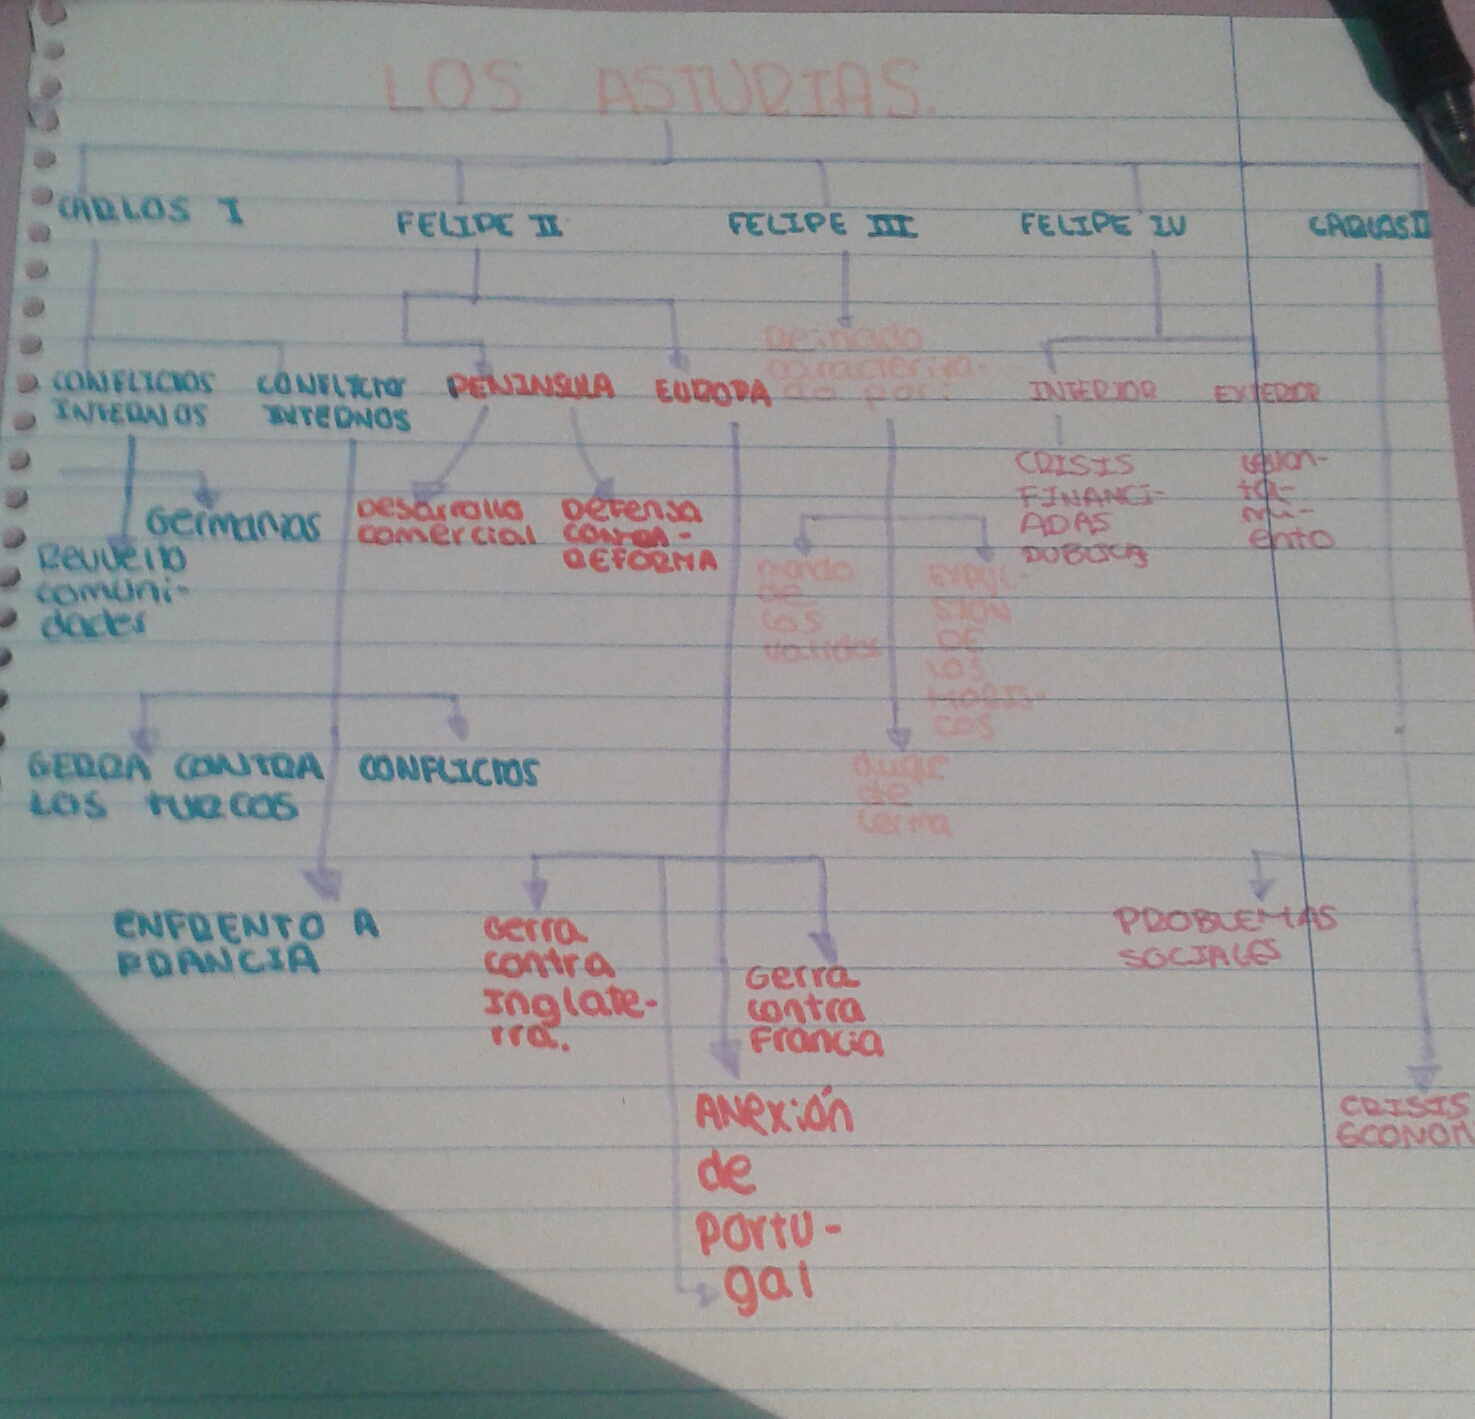 LOS ASTURIAS.
CARLOS I
FELIPE II
FELIPE III
FELIPE IV
CARLOS II
CONFLICIOS
INTERNOS
CONFLICTOS
INTERNOS
PENINSULA
EUROPA
Reinado
caracteriza-
do por:
INTERIOR
EXTERIOR
Germanias
Revuelta
comuni-
dades
Desarrollo
comercial
Defensa
contra-
REFORMA
mando
de
los
validos
EXPUL-
SIÓN
DE
LOS
MORIS-
COS
CRISIS
FINANCI-
ADAS
PUBLICA
Levan-
ta-
mi-
ento
GERRA CONTRA
LOS TURCOS
CONFLICTOS
duque
de
Lerma
ENFRENTO A
FRANCIA
Gerra
contra
Inglate-
rra.
Gerra
contra
Francia
ANexión
de
Portu-
gal
PROBLEMAS
SOCIALES
CRISIS
ECONOM